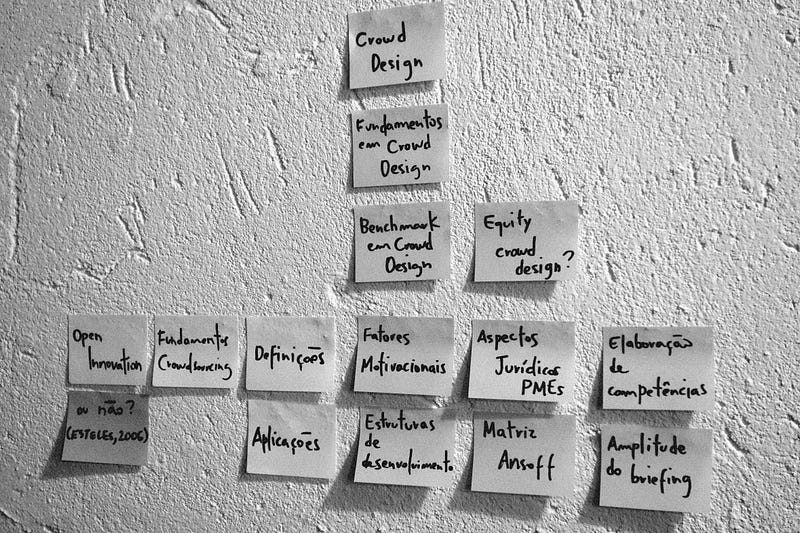 Crowd
Design
Fundamentos
em Crowd
Design
Benchmark
em Crowd
Design
Equity
crowd
design?
Open
Innovation
Fundamentos
Crowdsourcing
Definições
Fatores
Motivacionais
Aspectos
Jurídicos
PMEs
Elaboração
de
competências
ou não?
(ESTELES, 2006)
Aplicações
Estruturas
de
desenvolvimento
Matriz
Ansoff
Amplitude
do briefing